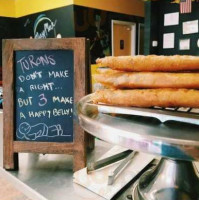 TURONS
DON'T MAKE
A RIGHT...
BUT 3 MAKE
A HAPPY BELLY!